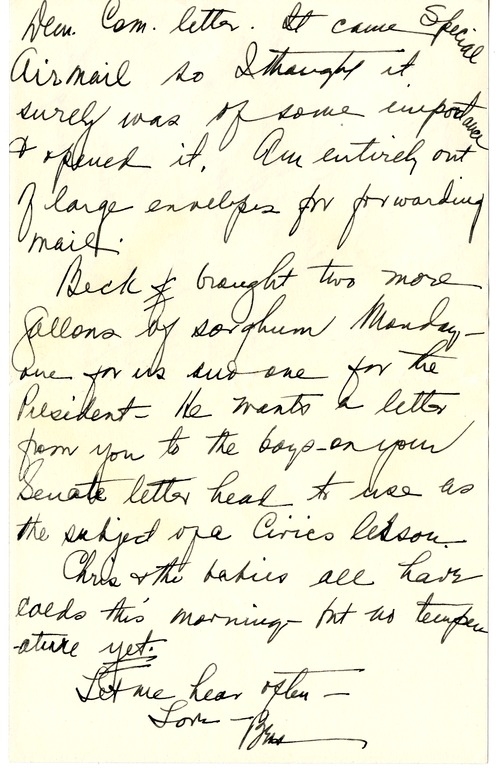 Dem. Com. letter. It came Special
Airmail so I thought it
surely was of some importance
& opened it. Am entirely out
of large envelopes for forwarding
mail.
Beck brought two more
gallons of sorghum Monday -
one for us and one for the
President - He wants a letter
from you to the boys - on your
Senate letter head to use as
the subject of a Civics lesson.
Chris & the babies all have
colds this morning - but no temper
-ature yet.
Let me hear often -
Love -